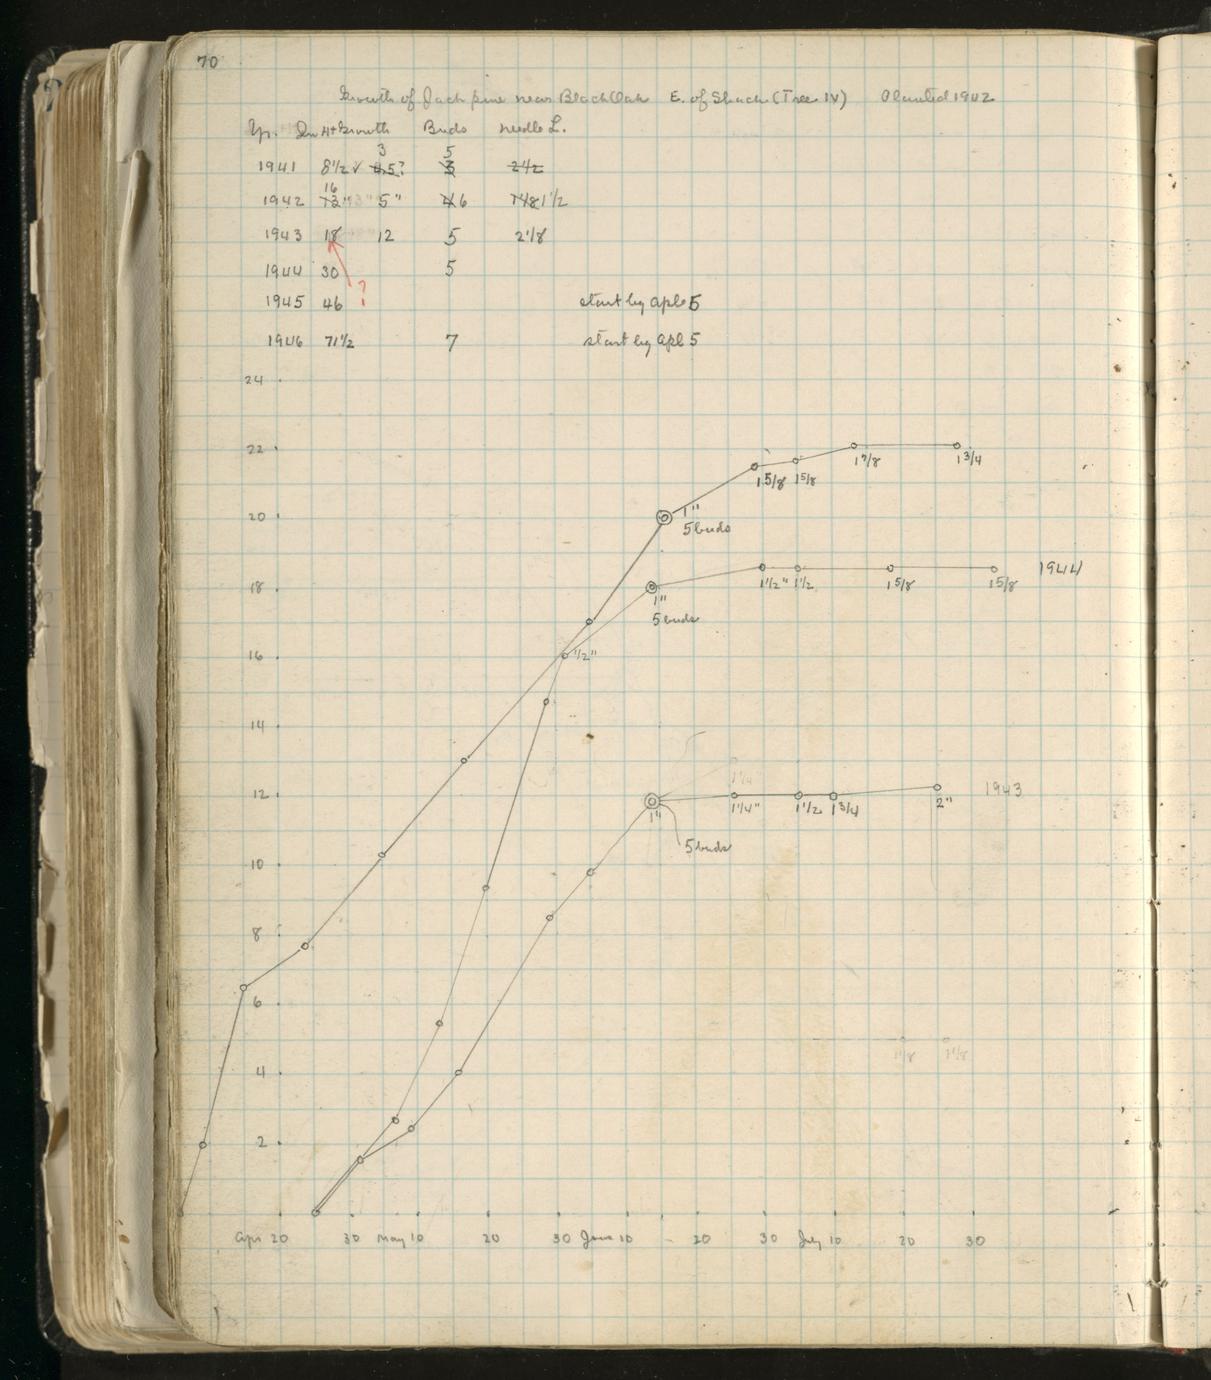 70
Growth of Jack pine near Black Oak E. of Shack (Tree IV) Planted 1942
Yr. Ht Growth Buds needle L.
3 5
1941 8 1/2 ✓ 4.5? 3 2 1/2
16
1942 13" 5" 4 6 1 1/2
1943 18 12 5 2 1/8
1944 30 5
?
1945 46 start by Apl 5
1946 71 1/2 7 start by Apl 5
24
22
1 5/8 1 5/8 1 7/8 1 3/4
20 1"
5 buds
1944
18 1 1/2" 1 1/2 1 5/8 1 5/8
1"
5 buds
16 1/2"
14
1 1/4
1943
12 1" 1 1/4" 1 1/2 1 3/4 2"
5 buds
10
8
6
1 1/8 1 1/8
4
2
Apr 20 30 May 10 20 30 June 10 20 30 July 10 20 30